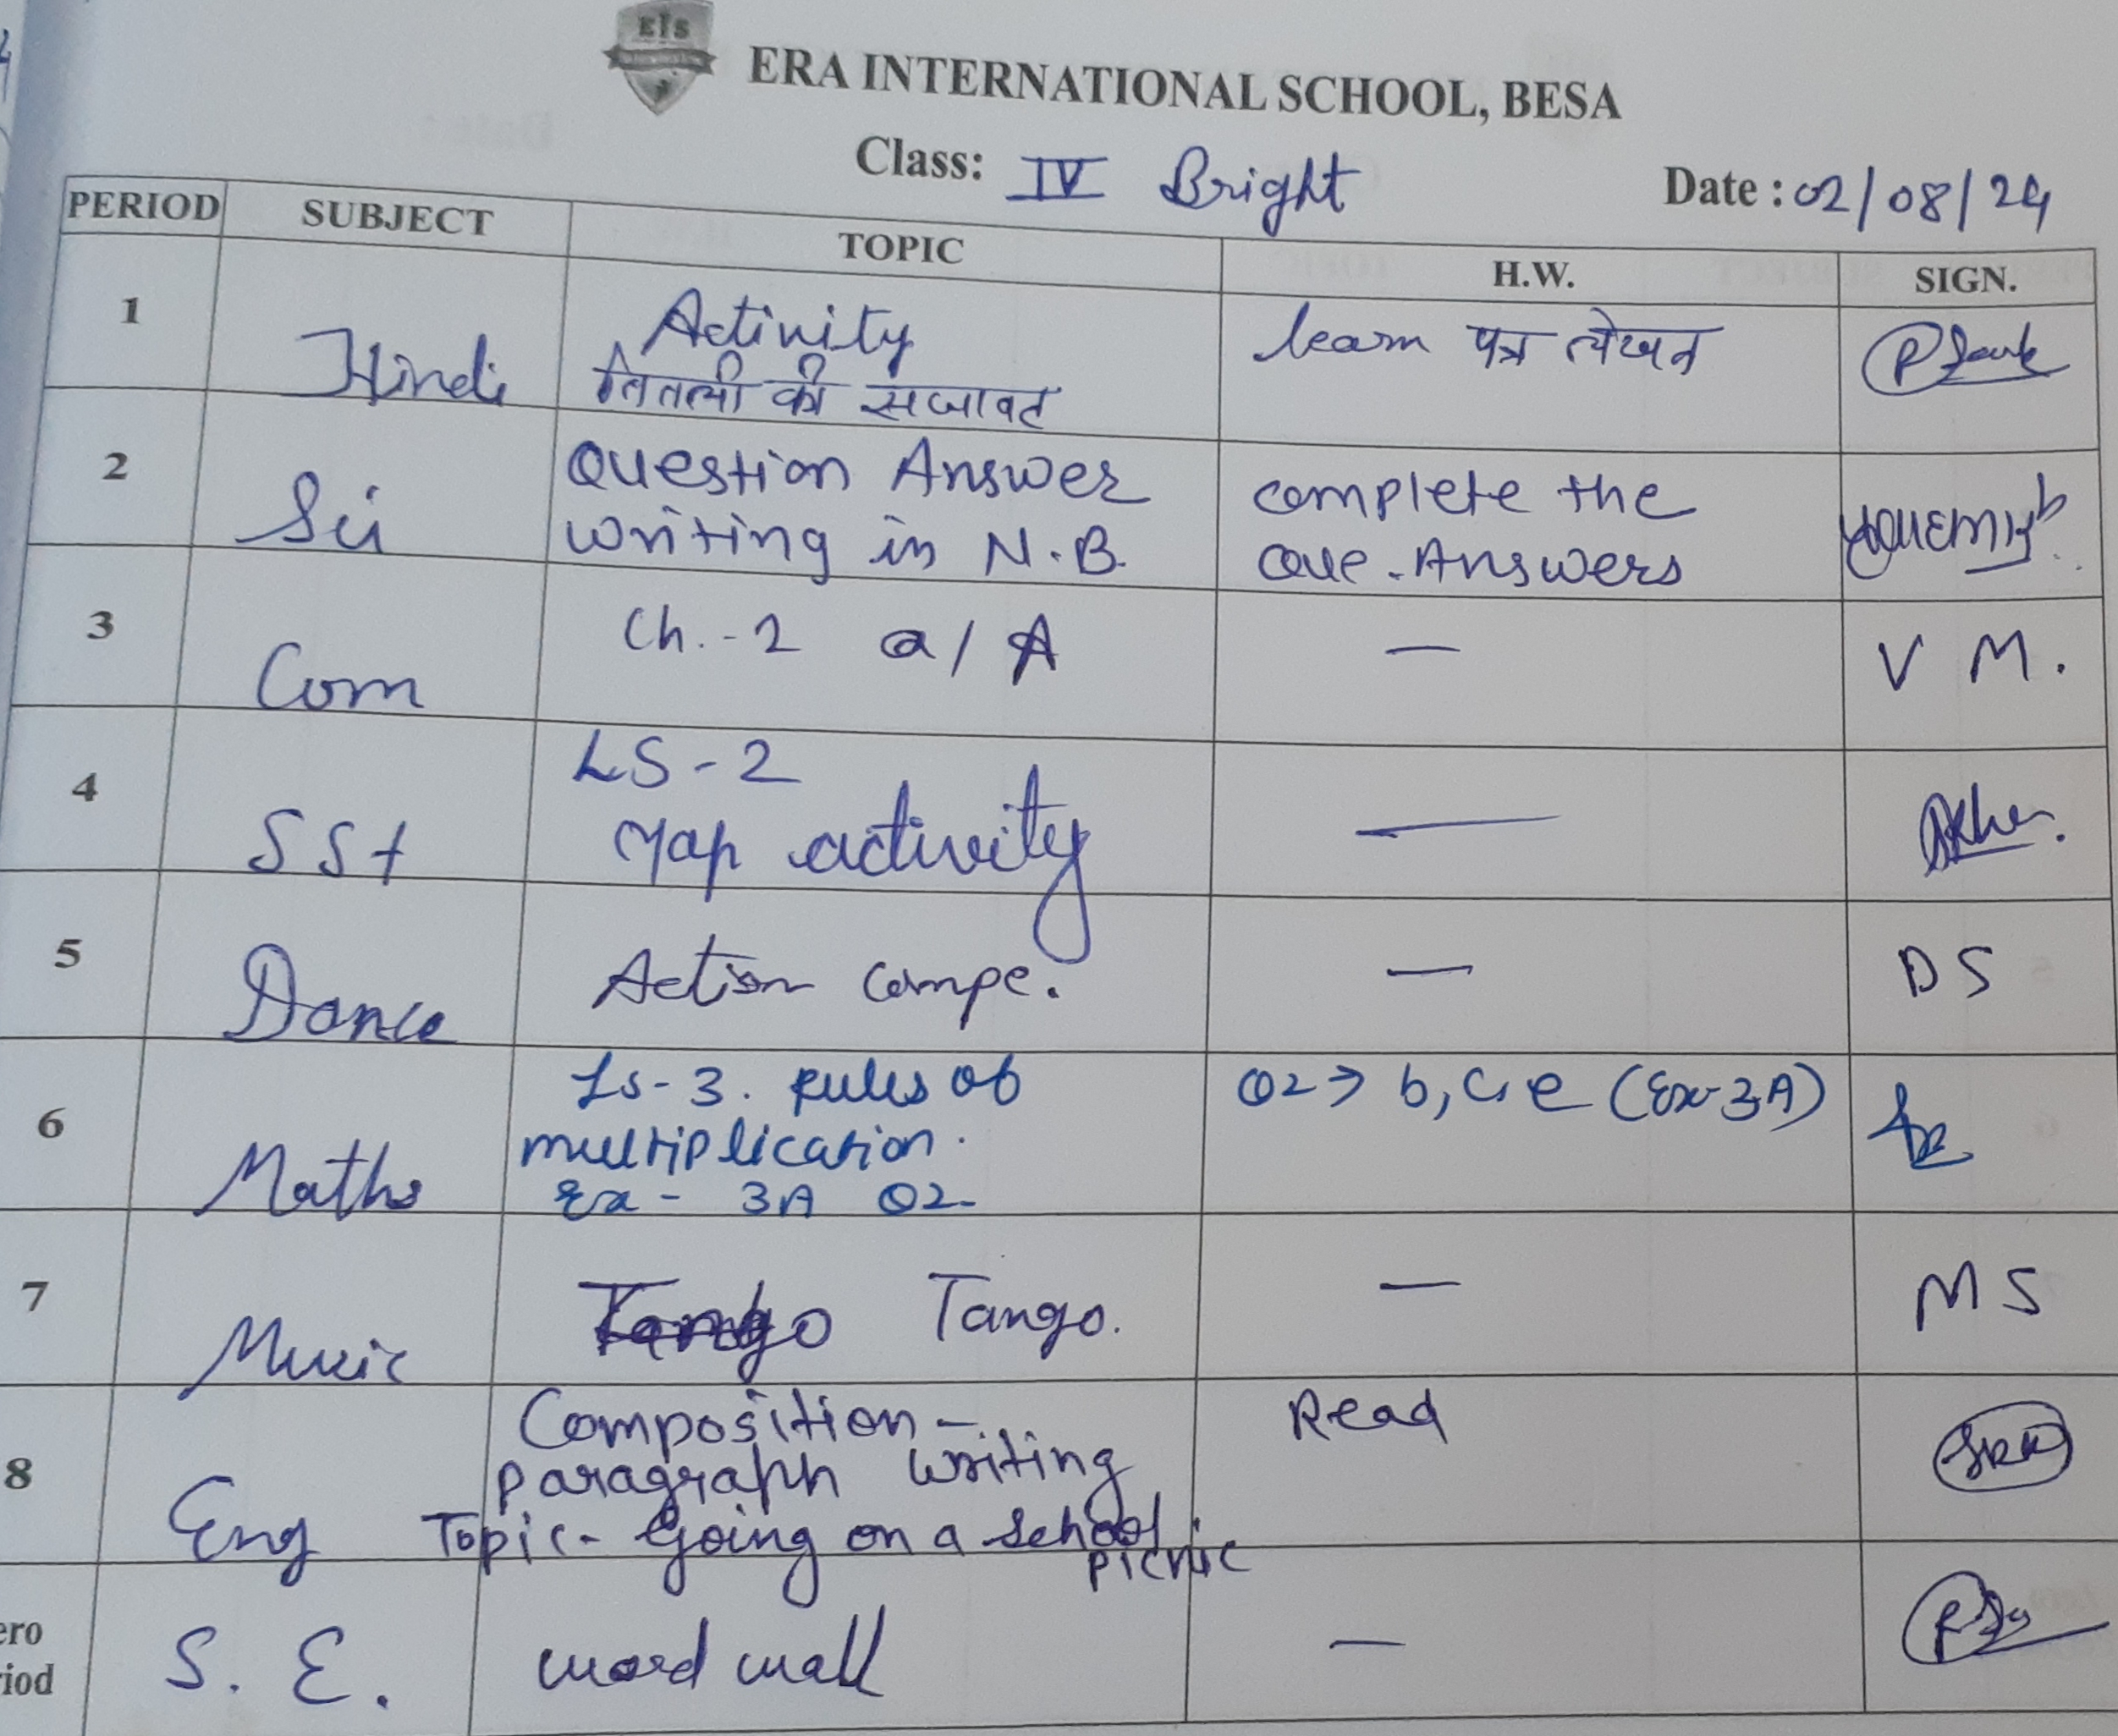 EIS
ERA INTERNATIONAL SCHOOL, BESA
Class: IV Bright Date : 02/08/24
PERIOD SUBJECT TOPIC H.W. SIGN.
1 Hindi Activity learn पत्र लेखन
तितली की सजावट
2 Sci Question Answer complete the
writing in N.B. Que. Answers
3 Com Ch.-2 Q/A — V M.
4 SSt LS-2 —
Map activity
5 Dance Action compe. — DS
6 Maths Ls-3. Rules of Q2→ b,c,e (Ex-3A)
multiplication.
Ex- 3A Q2-
7 Music Tango Tango. — MS
8 Eng Composition- Read
paragraph writing
Topic- Going on a School
picnic
ero
iod S. E. word wall —